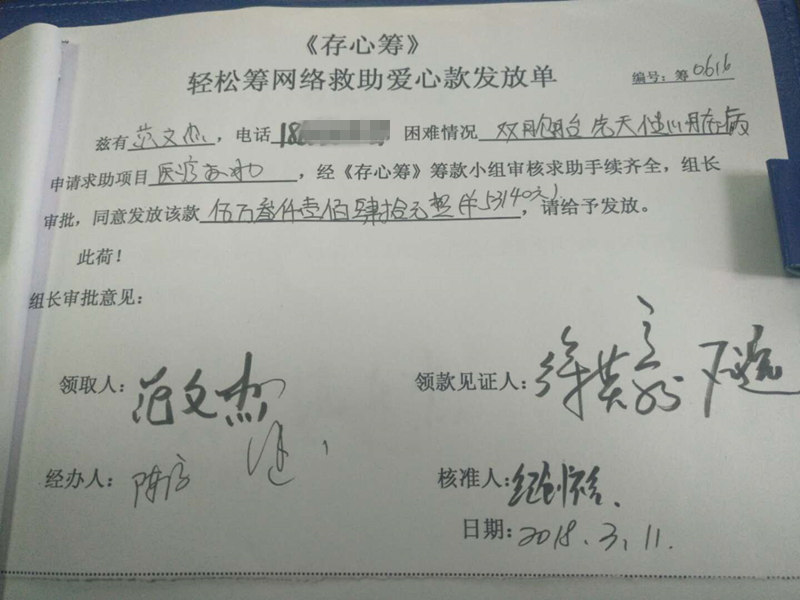 《存心筹》
轻松筹网络救助爱心款发放单
编号：筹0616
兹有范文杰，电话18 困难情况双胞胎先天性心脏病
申请求助项目医疗救助，经《存心筹》筹款小组审核求助手续齐全，组长
审批，同意发放该款伍万叁仟壹佰肆拾元整(¥53140元)，请给予发放。
此荷！
组长审批意见：
领取人：范文杰 领款见证人：
经办人：陈 核准人：
日期：2018.3.11.